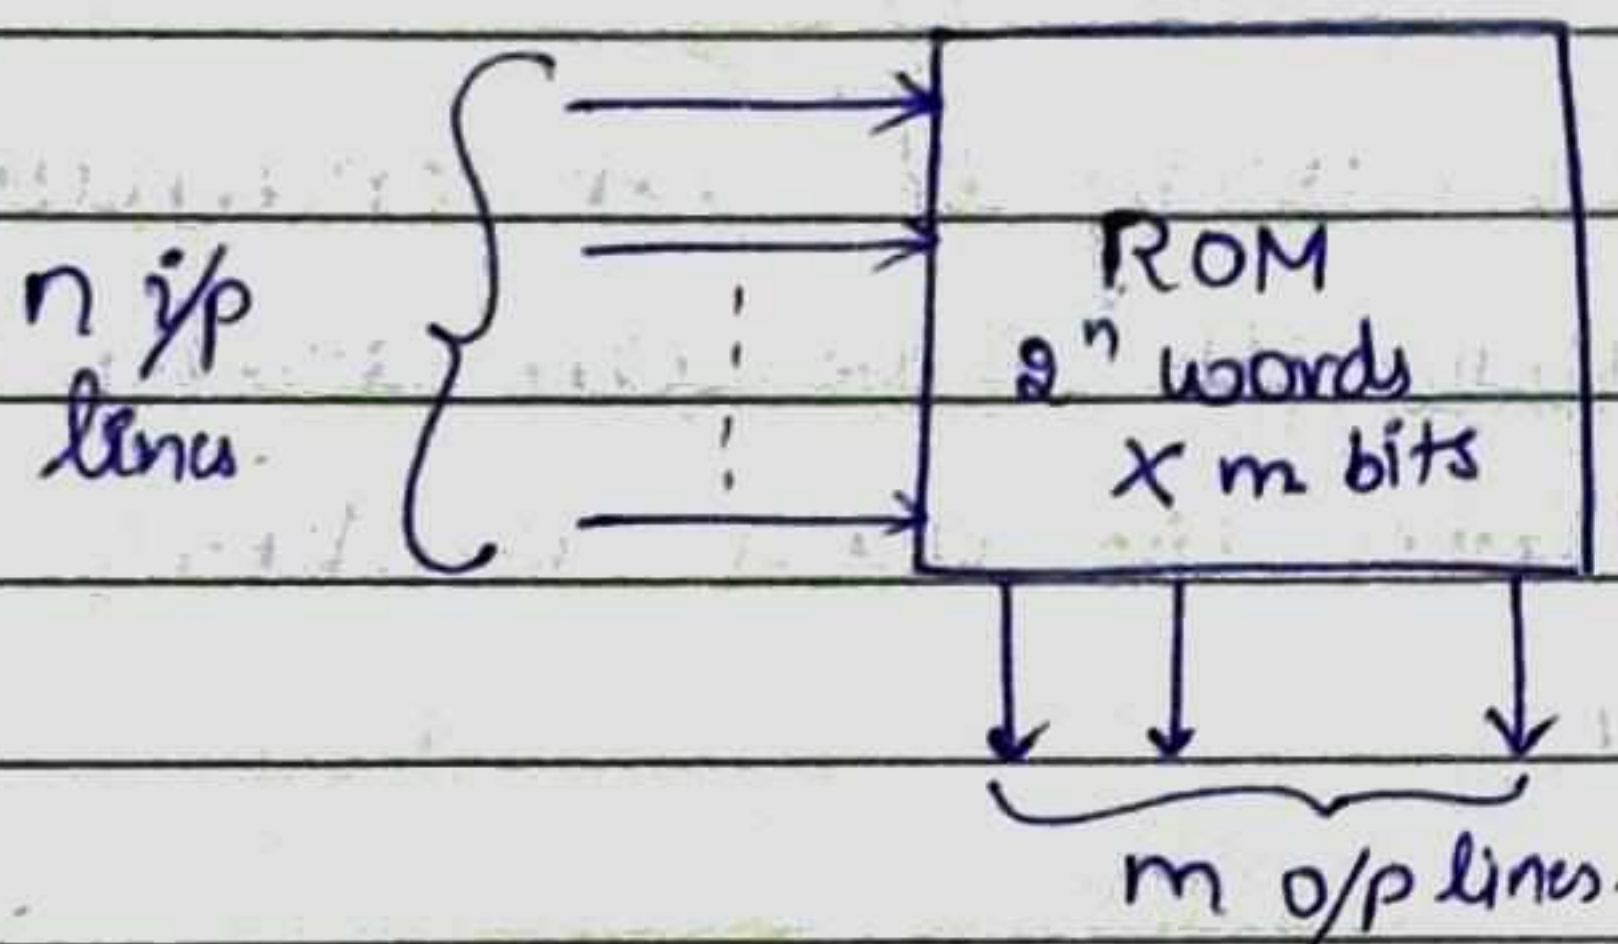 n i/p
lines.
ROM
2ⁿ words
x m bits
m o/p lines.